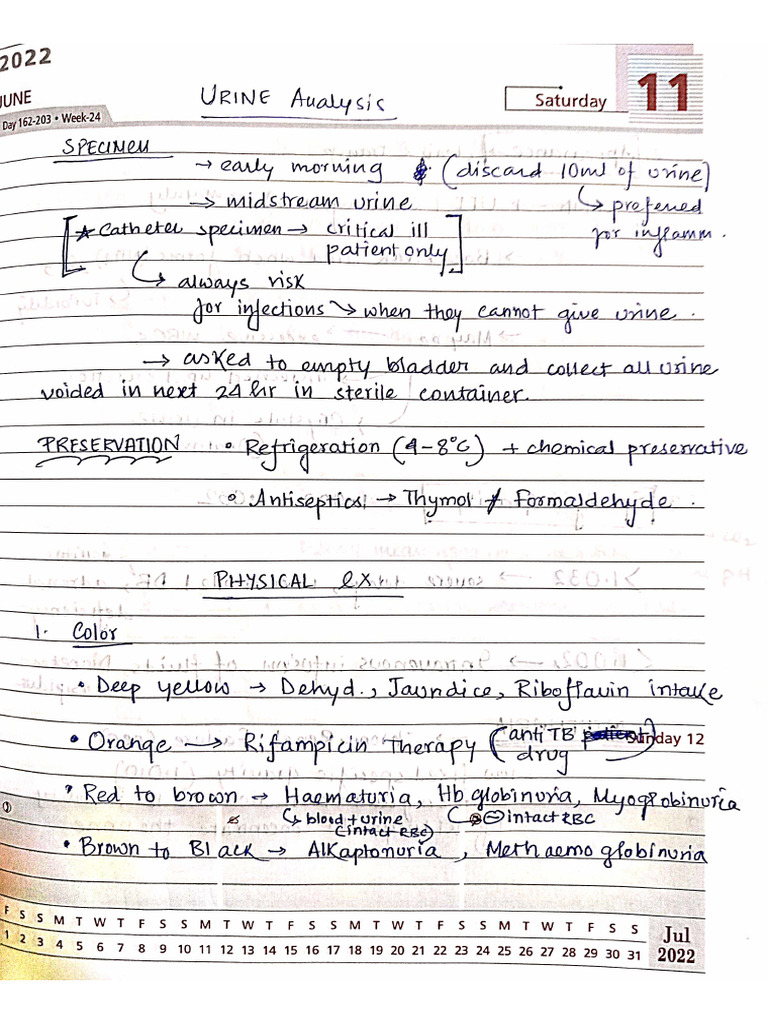 2022
JUNE
URINE Analysis
Saturday 11
Day 162-203 • Week-24
SPECIMEN
→ early morning (discard 10ml of urine)
→ midstream urine ↳ preferred
for inflamm.
[★ Catheter specimen → critical ill
patient only]
↳ always risk
for infections ↘ when they cannot give urine.
→ asked to empty bladder and collect all urine
voided in next 24 hr in sterile container.
PRESERVATION • Refrigeration (4-8°C) + chemical preservative
• Antiseptics → Thymol / Formaldehyde.
PHYSICAL ex
1. Color
• Deep yellow → Dehyd., Jaundice, Riboflavin intake
• Orange → Rifampicin Therapy (anti TB
drug)
Sunday 12
• Red to brown → Haematuria, Hb globinuria, Myoglobinuria
↳ blood + urine ↳ ⊖ intact RBC
(intact RBC)
• Brown to Black → Alkaptonuria, Methaemoglobinuria
F S S M T W T F S S M T W T F S S M T W T F S S M T W T F S S
1 2 3 4 5 6 7 8 9 10 11 12 13 14 15 16 17 18 19 20 21 22 23 24 25 26 27 28 29 30 31
Jul
2022